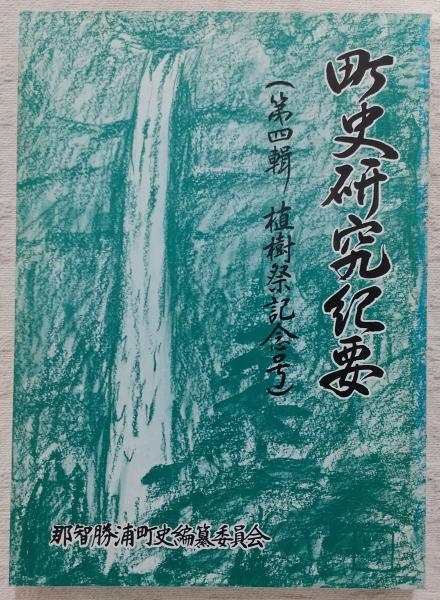 町史研究紀要
(第四輯 植樹祭記念号)
那智勝浦町史編纂委員会